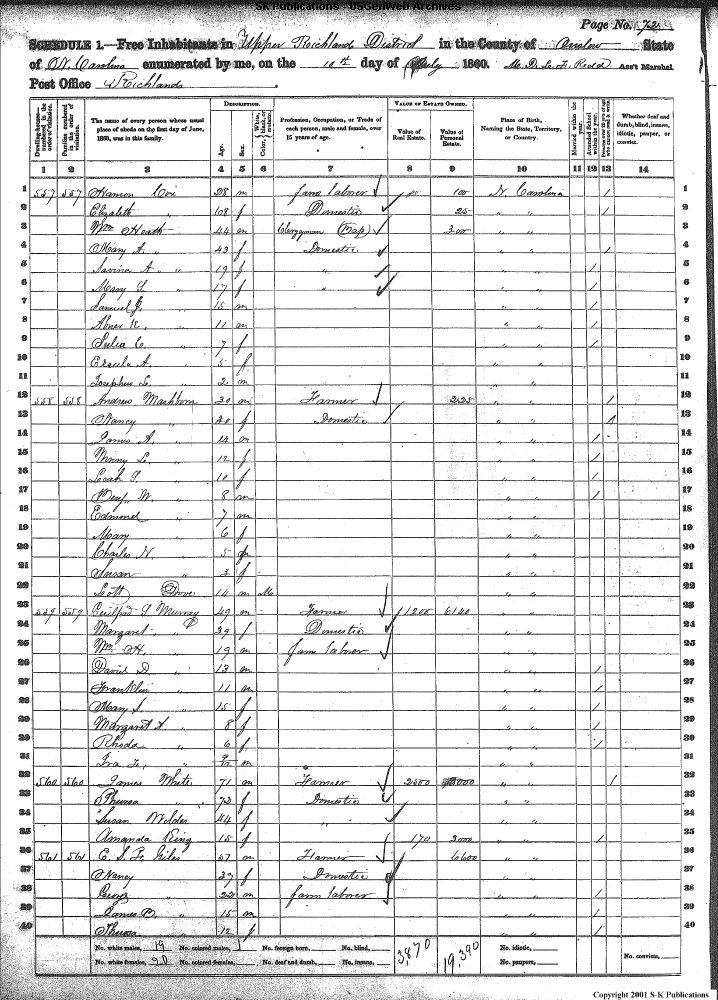 SK Publications - USGenWeb Archives
Page No. 72
SCHEDULE 1.—Free Inhabitants in Upper Richland District in the County of Onslow State
of N. Carolina enumerated by me, on the 10th day of July 1860. Ass't Marshal
Post Office Richlands
Dwelling-houses numbered in the order of visitation.
Families numbered in the order of visitation.
The name of every person whose usual place of abode on the first day of June, 1860, was in this family.
DESCRIPTION.
Age.
Sex.
Color, White, black, or mulatto.
Profession, Occupation, or Trade of each person, male and female, over 15 years of age.
VALUE OF ESTATE OWNED.
Value of Real Estate.
Value of Personal Estate.
Place of Birth, Naming the State, Territory, or Country.
Married within the year.
Attended School within the year.
Whether deaf and dumb, blind, insane, idiotic, pauper, or convict.
1 2 3 4 5 6 7 8 9 10 11 12 13 14
1 557 557 Harmon Cox 28 m farm laborer / 100 N. Carolina / 1
2 Elizabeth " f Domestic 25 " " / 2
3 Wm Heath 44 m Clergyman (Bap) / 300 " " 3
4 Mary A. " 43 f Domestic " " / 4
5 Savina A. " 19 f " " " / 5
6 Mary " 17 f " " " / 6
7 Samuel J. " 15 m " " / 7
8 Abner " 11 m " " / 8
9 Julia C. " 7 f " " / 9
10 A. " 5 f " " 10
11 Josephus L. " 2 m " " 11
12 558 558 Andrew Mashborn 30 m Farmer / 225 " " / 12
13 Nancy " f Domestic " " / 13
14 James A. " 14 m " " / 14
15 Winny L. " 12 f " " / 15
16 Leah " 10 f " " / 16
17 Benj. W. " 8 m " " / 17
18 Edmond " 7 m " " 18
19 Mary " 6 f " " 19
20 Charles N. " 5 m " " 20
21 Susan " 3 f " " 21
22 Scott Dove 14 m Mu " " 22
23 559 559 Guilford Murray 49 m Farmer / 1200 6140 " " 23
24 Margaret " 39 f Domestic " " 24
25 Wm H. " 19 m farm laborer " " 25
26 David D. " 13 m " " / 26
27 Franklin " 11 m " " / 27
28 Mary " 15 f " " / 28
29 Margaret " 8 f " " / 29
30 Rhoda " 6 f " " / 30
31 Ira " m " " 31
32 560 560 James White 71 m Farmer / 2500 " " / 32
33 " 73 f Domestic " " 33
34 Susan 44 f " " " 34
35 Amanda King 15 f 170 3000 " " / 35
36 561 561 E. S. F. Giles 57 m Farmer / 6600 " " 36
37 Nancy " 39 f Domestic " " 37
38 " m farm laborer " " / 38
39 James " 15 m " " / 39
40 " 12 f " " / 40
No. white males, 19 No. colored males, 1 No. foreign born, No. blind, 3,870 19,390 No. idiotic,
No. white females, 20 No. colored females, No. deaf and dumb, No. insane, No. paupers, No. convicts,
Copyright 2001 S-K Publications